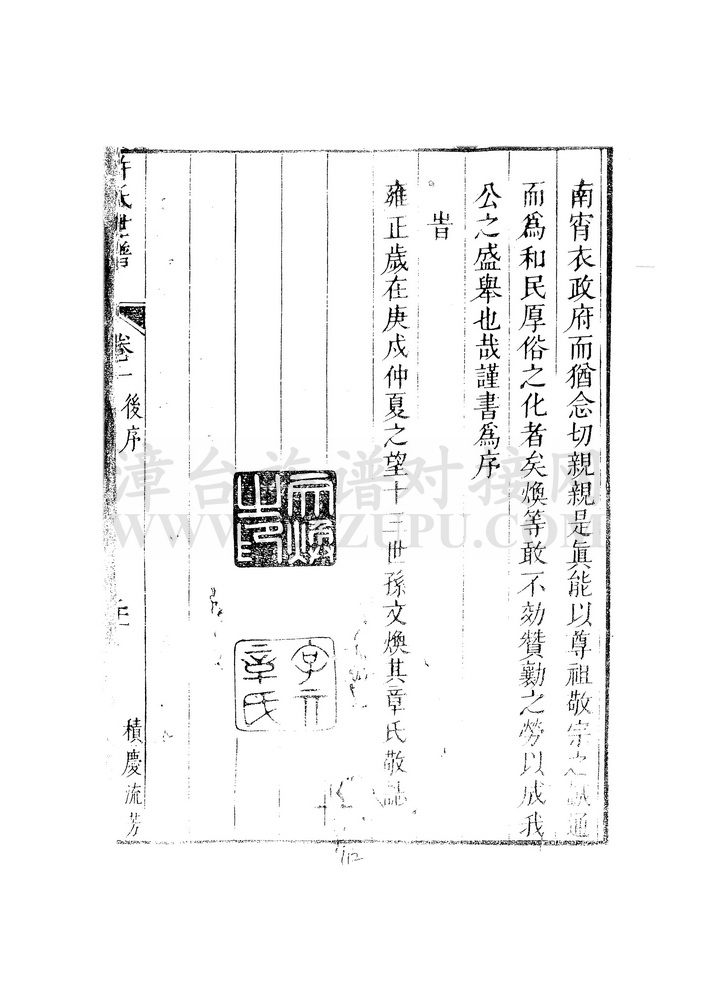 南宵衣政府而猶念切親親是眞能以尊祖敬宗之誠通
而爲和民厚俗之化者矣煥等敢不効贊勷之勞以成我
公之盛舉也哉謹書爲序
旹
雍正歲在庚戌仲夏之望十三世孫文煥其章氏敬誌
文煥之印
字章氏
許氏世譜 卷一 後序 積慶流芳
漳台族谱对接网
112